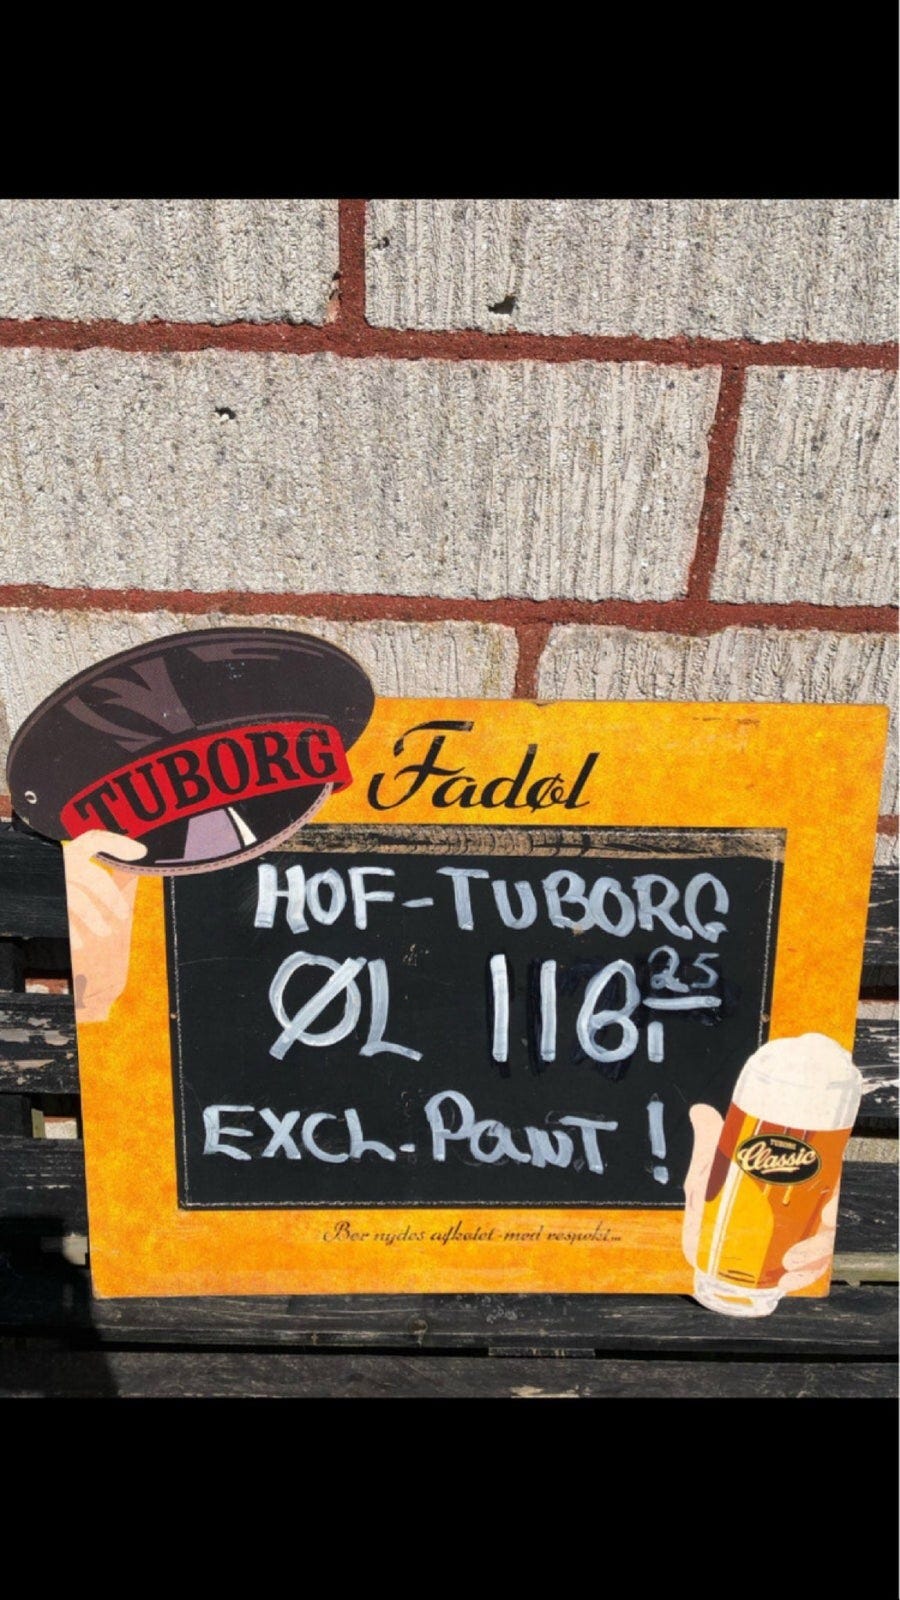 TUBORG
Fadøl
HOF-TUBORG
ØL 116,25
EXCL. PANT!
Bør nydes afkølet - med respekt...
TUBORG
Classic